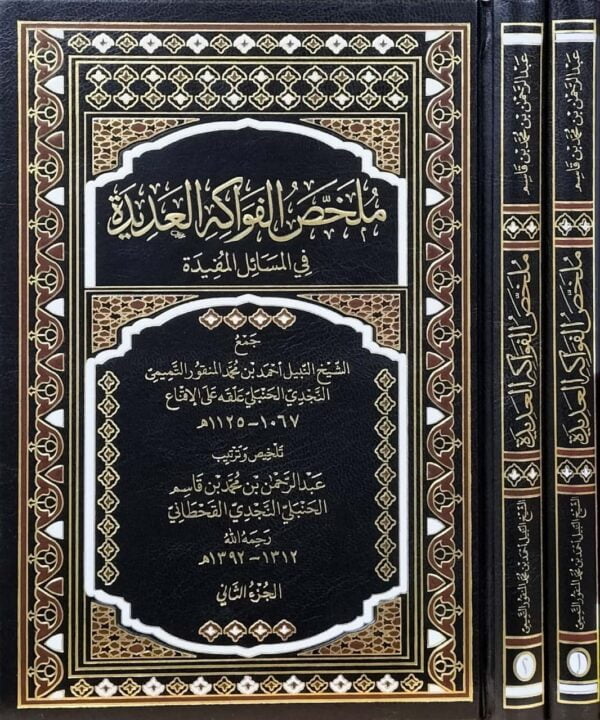 ملخص الفواكه العديدة
في المسائل المفيدة
جمع
الشيخ النبيل أحمد بن محمد المنقور التميمي
النجدي الحنبلي علقه على الإقناع
١٠٦٧ – ١١٢٥هـ
تلخيص وترتيب
عبد الرحمن بن محمد بن قاسم
الحنبلي النجدي القحطاني
رحمه الله
١٣١٢ – ١٣٩٢هـ
الجزء الثاني
عبد الرحمن بن محمد بن قاسم
ملخص الفواكه العديدة
الشيخ النبيل أحمد بن محمد المنقور التميمي
٢
عبد الرحمن بن محمد بن قاسم
ملخص الفواكه العديدة
الشيخ النبيل أحمد بن محمد المنقور التميمي
١